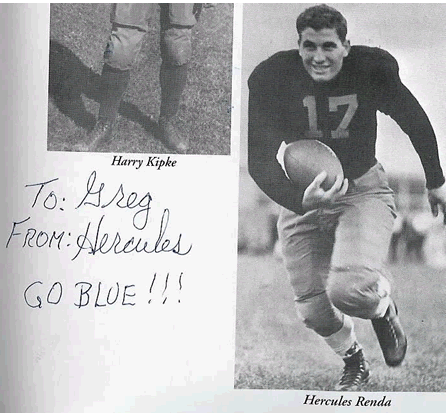 17
Harry Kipke
To: Greg
FROM: Hercules
GO BLUE!!!
Hercules Renda